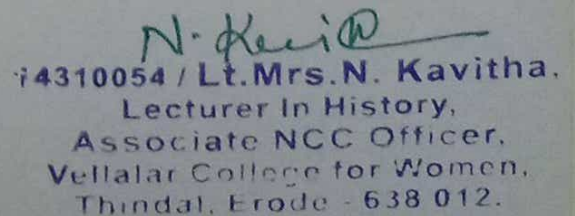 N. Kavitha
i4310054 / Lt.Mrs.N. Kavitha.
Lecturer In History,
Associate NCC Officer,
Vellalar College for Women,
Thindal, Erode - 638 012.